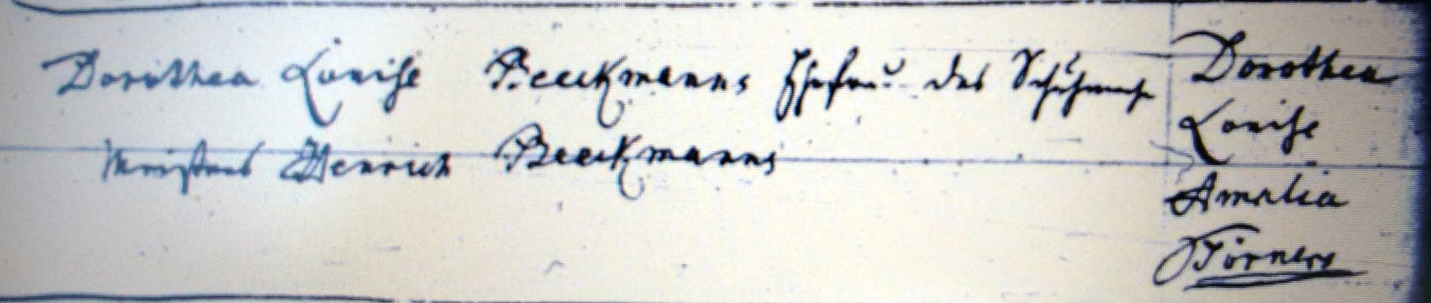 Dorothea Louise Beeckmanns Ehefrau des Schuhmach
Meisters Henrich Beeckmanns
Dorothea
Louise
Amalia
Törners